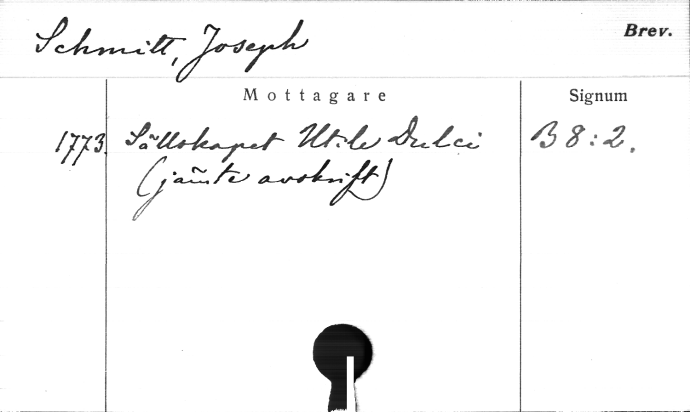 Schmitt, Joseph
Brev.
Mottagare
Signum
1773. Sällskapet Utile Dulci B 8:2.
(jämte avskrift)